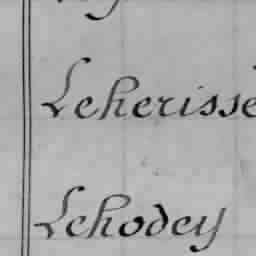 Leherisse
Lehodey